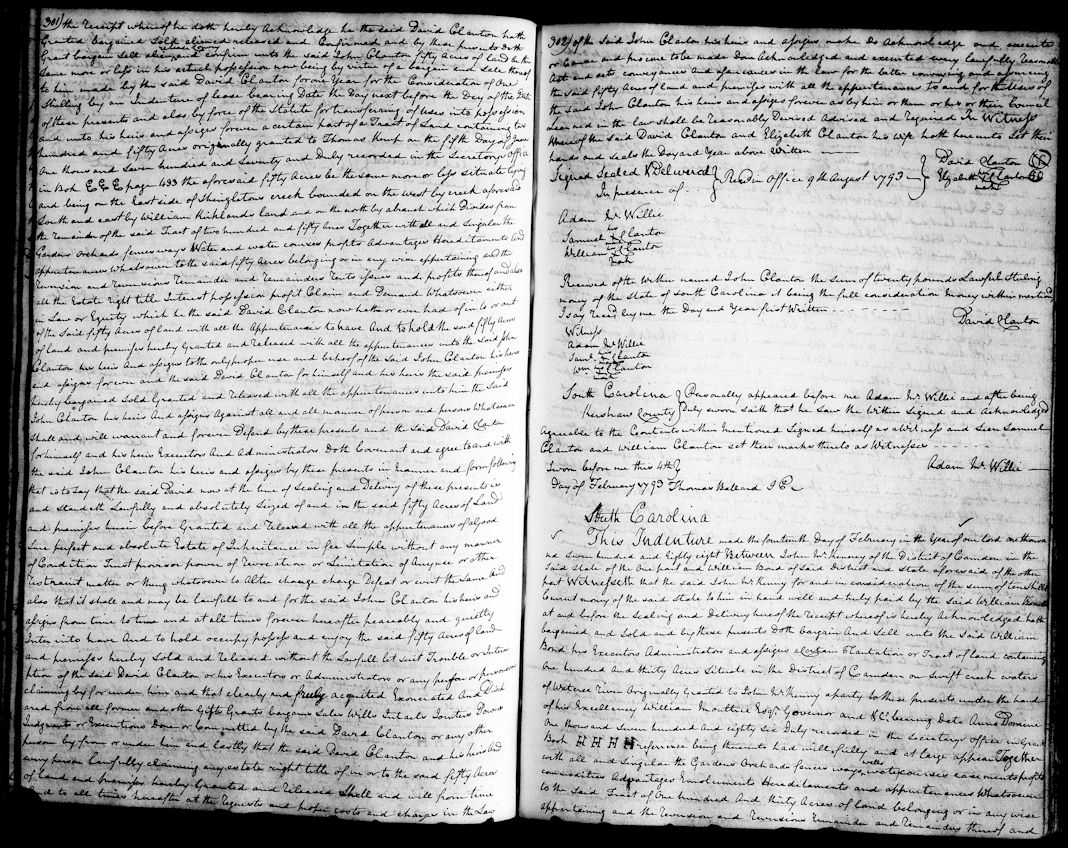 301/ the Receipt whereof he doth hereby Acknowledge he the said David Clanton hath
Granted bargained Sold aliened released and Confirmed and by these presents Doth
Grant bargain Sell aliene release and Confirm unto the said John Clanton fifty Acres of land be the
Same more or less in his actual possession now being by virtue of a bargain and Sale thereof
to him made by the said David Clanton for one Year for the Consideration of One
Shilling by an Indenture of lease bearing Date the Day next before the Day of the Date
of these presents and also by force of the Statute for transferring of Uses into possession
and unto his heirs and assigns forever a certain part of a Tract of Land containing two
hundred and fifty Acres originally granted to Thomas Kemp on the fifth Day of June
One thous and Seven hundred and Seventy and Duly recorded in the Secretarys Office
in Book E E E page 433 the aforesaid fifty Acres be the same more or less situate lying
and being on the East side of Shingletons creek bounded on the West by creek aforesaid
South and east by William Kirklands land and on the north by a branch which Divides from
the remainder of the said Tract of two hundred and fifty Acres Together with all and Singular the
Gardens Orchards fences ways Water and water courses profits Advantages Hereditaments And
appurtenances whatsoever to the said fifty Acres belonging or in any wise appertaining and the
reversion and reversions remainder and remainders rents issues and profits thereof and also
all the Estate right title Interest possession profit Claim and Demand Whatsoever either
in Law or Equity which he the said David Clanton now hath or ever had of in to or out
of the said fifty Acres of land with all the Appurtenances to have And to hold the said fifty Acres
of land and premises hereby Granted and released with all the appurtenances unto the said John
Clanton his heirs And assigns to the only proper use and behoof of the said John Clanton his heirs
and assigns forever and the said David Clanton for himself and his heirs the said premises
hereby bargained Sold Granted and released with all the appurtenances unto him the Said
John Clanton his heirs And assigns Against all and all manner of person and persons Whatsoever
Shall and will warrant and forever Defend by these presents and the said David Clanton
for himself and his heirs Executors And Administrators Doth Covenant and agree to and with
the said John Clanton his heirs and assigns by these presents in manner and form following
that is to Say that the said David now at the time of Sealing and Delivery of these presents is
and standeth Lawfully and absolutely Seized of and in the said fifty Acres of Land
and premises herein before Granted and released with all the appurtenances of a Good
Sure perfect and absolute Estate of Inheritance in fee Simple without any manner
of Condition Trust proviso power of revocation or Limitation of Any use or other
restraint matter or thing whatsoever to Alter change charge Defeat or evict the Same And
also that it shall and may be lawfull to and for the said John Clanton his heirs and
assigns from time to time and at all times forever hereafter peaceably and quietly
Enter into have And to hold occupy possess and enjoy the said fifty Acres of land
and premises hereby Sold and released without the Lawfull let suit Trouble or Interr
ption of the said David Clanton or his Executors or Administrators or any person or persons
claiming by for under him and that clearly and freely acquited Exonerated And Disch
arged from all former and other Gifts Grants bargains Sales Wills Intails Jointers Dower
Judgments or Executions Done or Committed by the said David Clanton or any other
person by from or under him and lastly that the said David Clanton and his heirs And
every person lawfully claiming any estate right title of in or to the said fifty Acres
of land and premises hereby Granted and released Shall and will from time
and to all times hereafter at the Requests and proper costs and charges in the Law
302/ of the said John Clanton his heirs and assigns make do Acknowledge and execute
or Cause and procure to be made Done Acknowledged and executed every lawfully reasonable
Act and acts conveyances and assurances in the law for the better conveying and assuring
the said fifty Acres of land and premises with all the appurtenances To and for the Uses of
the said John Clanton his heirs and assigns forever as by him or them or his or their Council
Learned in the law shall be reasonably Devised Advised and required In Witness
Whereof the said David Clanton and Elizabeth Clanton his wife hath hereunto Set their
hands and seals the Day and Year above Written
Signed Sealed & Delivered
In presence of
Recd in Office 9th August 1793
David Clanton LS
Elizabeth Clanton LS
mark
Adam McWillie
his
Samuel Clanton
William Clanton
mark
Received of the within named John Clanton the sum of twenty pounds Lawful Sterling
money of the State of South Carolina it being the full consideration money within mentiond
I say recd by me the Day and Year first Written
David Clanton
Witness
Adam McWillie
Saml Clanton
Wm Clanton
South Carolina
Kershaw County
Personally appeared before me Adam McWillie and after being
Duly sworn saith that he saw the Within Signed and Acknowledged
Agreeable to the Contents within Mentioned Signed himself as a Witness and Seen Samuel
Clanton and William Clanton set their marks thereto as Witnesses
Sworn before me this 4th
Day of February 1793 Thomas Ballard J P
Adam McWillie
South Carolina
This Indenture made the fourteenth Day of February in the Year of our Lord one thousa
nd Seven hundred and Eighty eight Between John McKinny of the District of Camden in the
Said State of the One part and William Bond of Said District and State aforesaid of the other
part Witnesseth that the said John McKinny for and in consideration of the sum of ten
Current money of the said State to him in hand well and truly paid by the said William Bond
at and before the Sealing and Delivery hereof the receipt whereof is hereby Acknowledged hath
bargained and Sold and by these presents Doth Bargain And Sell unto the said William
Bond his Executors Administrators and assigns a certain Plantation or Tract of land containing
One hundred and thirty Acres Situate in the District of Camden on Swift creek waters
of Wateree river Originally Granted to John McKinny a party to these presents under the hand
of his Excellency William Moultrie Esqr Governor and &C bearing Date Anno Domini
One thousand Seven hundred and eighty six Duly recorded in the Secretarys office in Grant
Book H H H H reference being thereunto had will fully and at large appear Together
with all and Singular the Gardens Orchards fences ways wells watercourses easements profits
commodities Advantages Emoluments Hereditaments and appurtenances Whatsoever
to the said Tract of One hundred And thirty Acres of land belonging or in any wise
appertaining and the reversion and reversions Remainder and Remainders thereof and